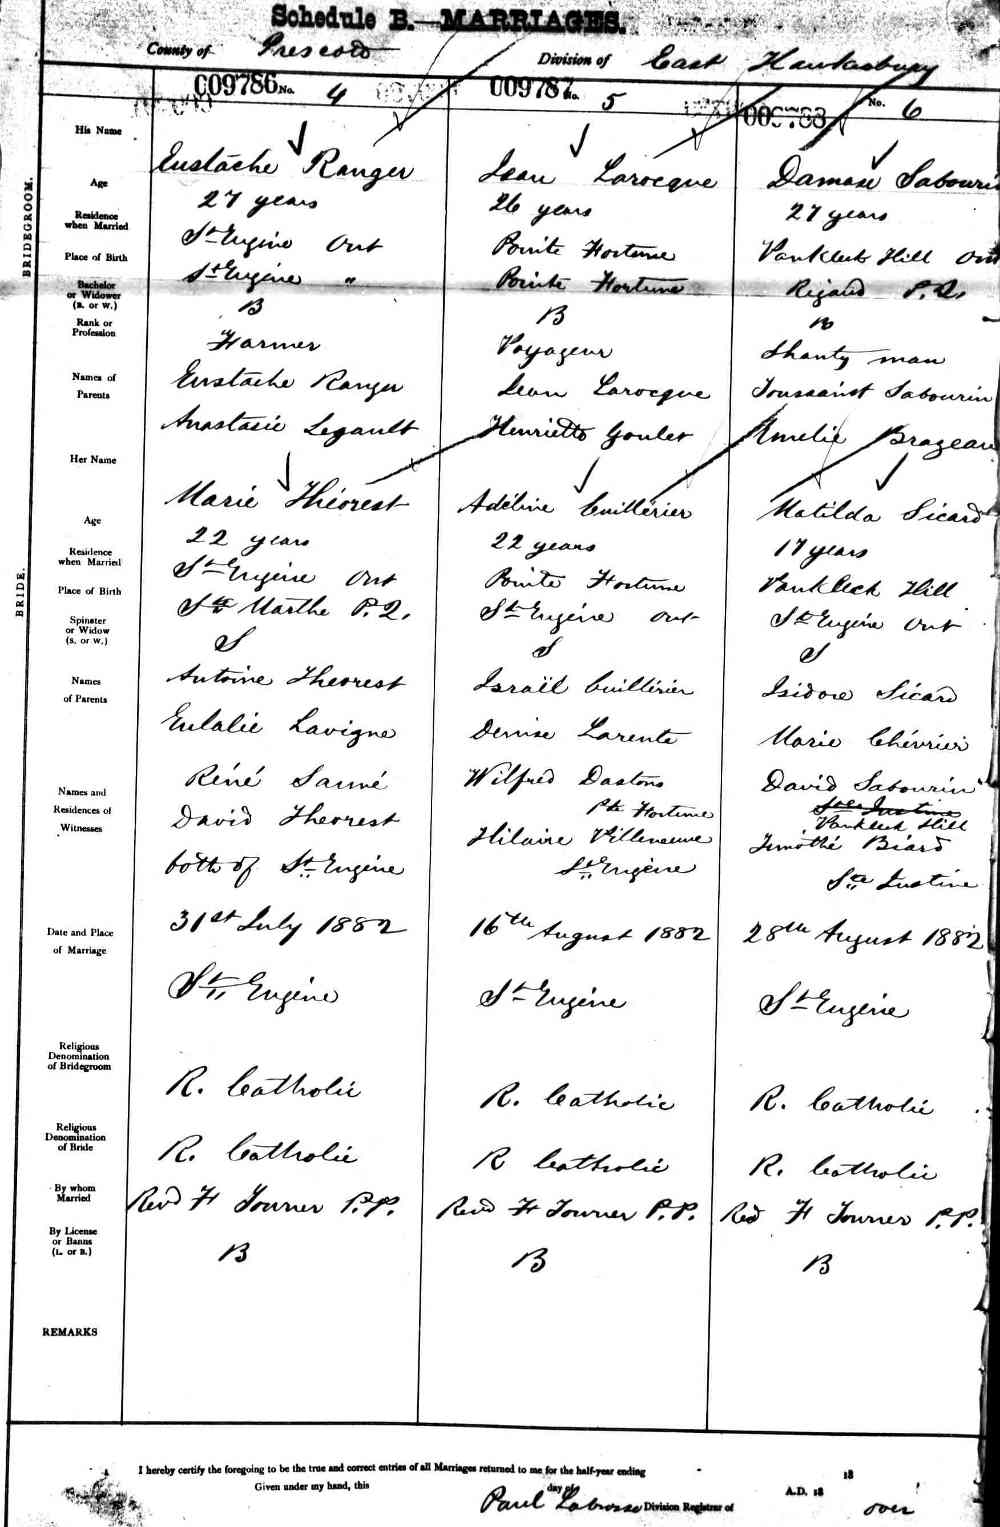 Schedule B.—MARRIAGES.
County of Prescott Division of East Hawkesbury
009786 No. 4 009787 No. 5 No. 6
BRIDEGROOM.
His Name Eustache Ranger Jean Larocque Damase Sabourin
Age 27 years 26 years 27 years
Residence when Married St Eugène Ont Pointe Fortune Vankleek Hill Ont
Place of Birth St Eugène " Pointe Fortune Rigaud P.Q.
Bachelor or Widower (B. or W.) B B B
Rank or Profession Farmer Voyageur Shanty man
Names of Parents Eustache Ranger Jean Larocque Toussaint Sabourin
Anastasie Legault Henriette Goulet Amelie Brazeau
BRIDE.
Her Name Marie Théorest Adéline Cuillérier Matilda Sicard
Age 22 years 22 years 17 years
Residence when Married St Eugène Ont Pointe Fortune Vankleek Hill
Place of Birth Ste Marthe P.Q. St Eugène Ont St Eugène Ont
Spinster or Widow (S. or W.) S S S
Names of Parents Antoine Theorest Israël Cuillérier Isidore Sicard
Eulalie Lavigne Denise Larente Marie Chévrier
Names and Residences of Witnesses Réné Sauvé Wilfred Dastous David Sabourin
Pte Fortune Ste Justine
Vankleek Hill
David Theorest Hilaire Villeneuve Timothé Biard
both of St Eugène St Eugène Ste Justine
Date and Place of Marriage 31st July 1882 16th August 1882 28th August 1882
St Eugène St Eugène St Eugène
Religious Denomination of Bridegroom R. Catholic R. Catholic R. Catholic
Religious Denomination of Bride R. Catholic R Catholic R. Catholic
By whom Married Revd F Tourner P.P. Revd F Tourner P.P. Revd F Tourner P.P.
By License or Banns (L. or B.) B B B
REMARKS
I hereby certify the foregoing to be the true and correct entries of all Marriages returned to me for the half-year ending 18
Given under my hand, this day of A.D. 18
Paul Labrosse Division Registrar of over